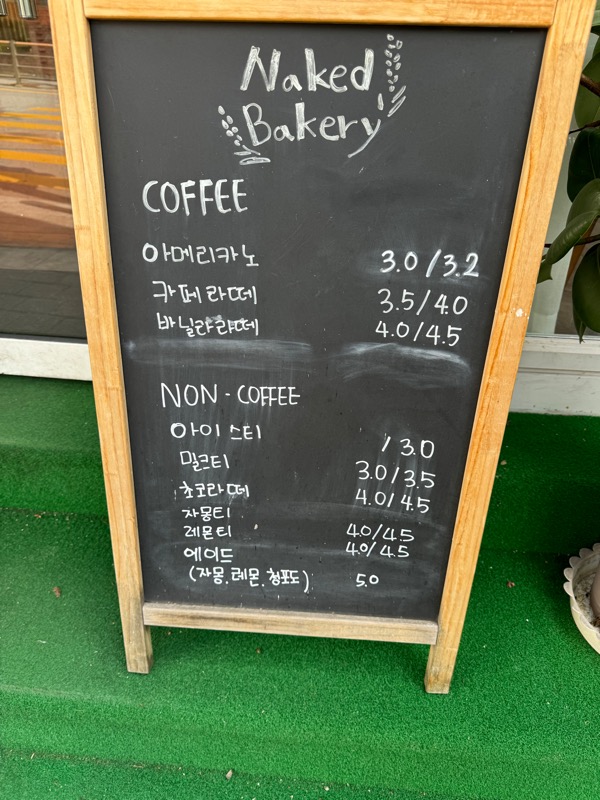 Naked
Bakery
COFFEE
아메리카노 3.0/3.2
카페라떼 3.5/4.0
바닐라라떼 4.0/4.5
NON-COFFEE
아이스티 /3.0
밀크티 3.0/3.5
초코라떼 4.0/4.5
자몽티 4.0/4.5
레몬티 4.0/4.5
에이드
(자몽.레몬.청포도) 5.0